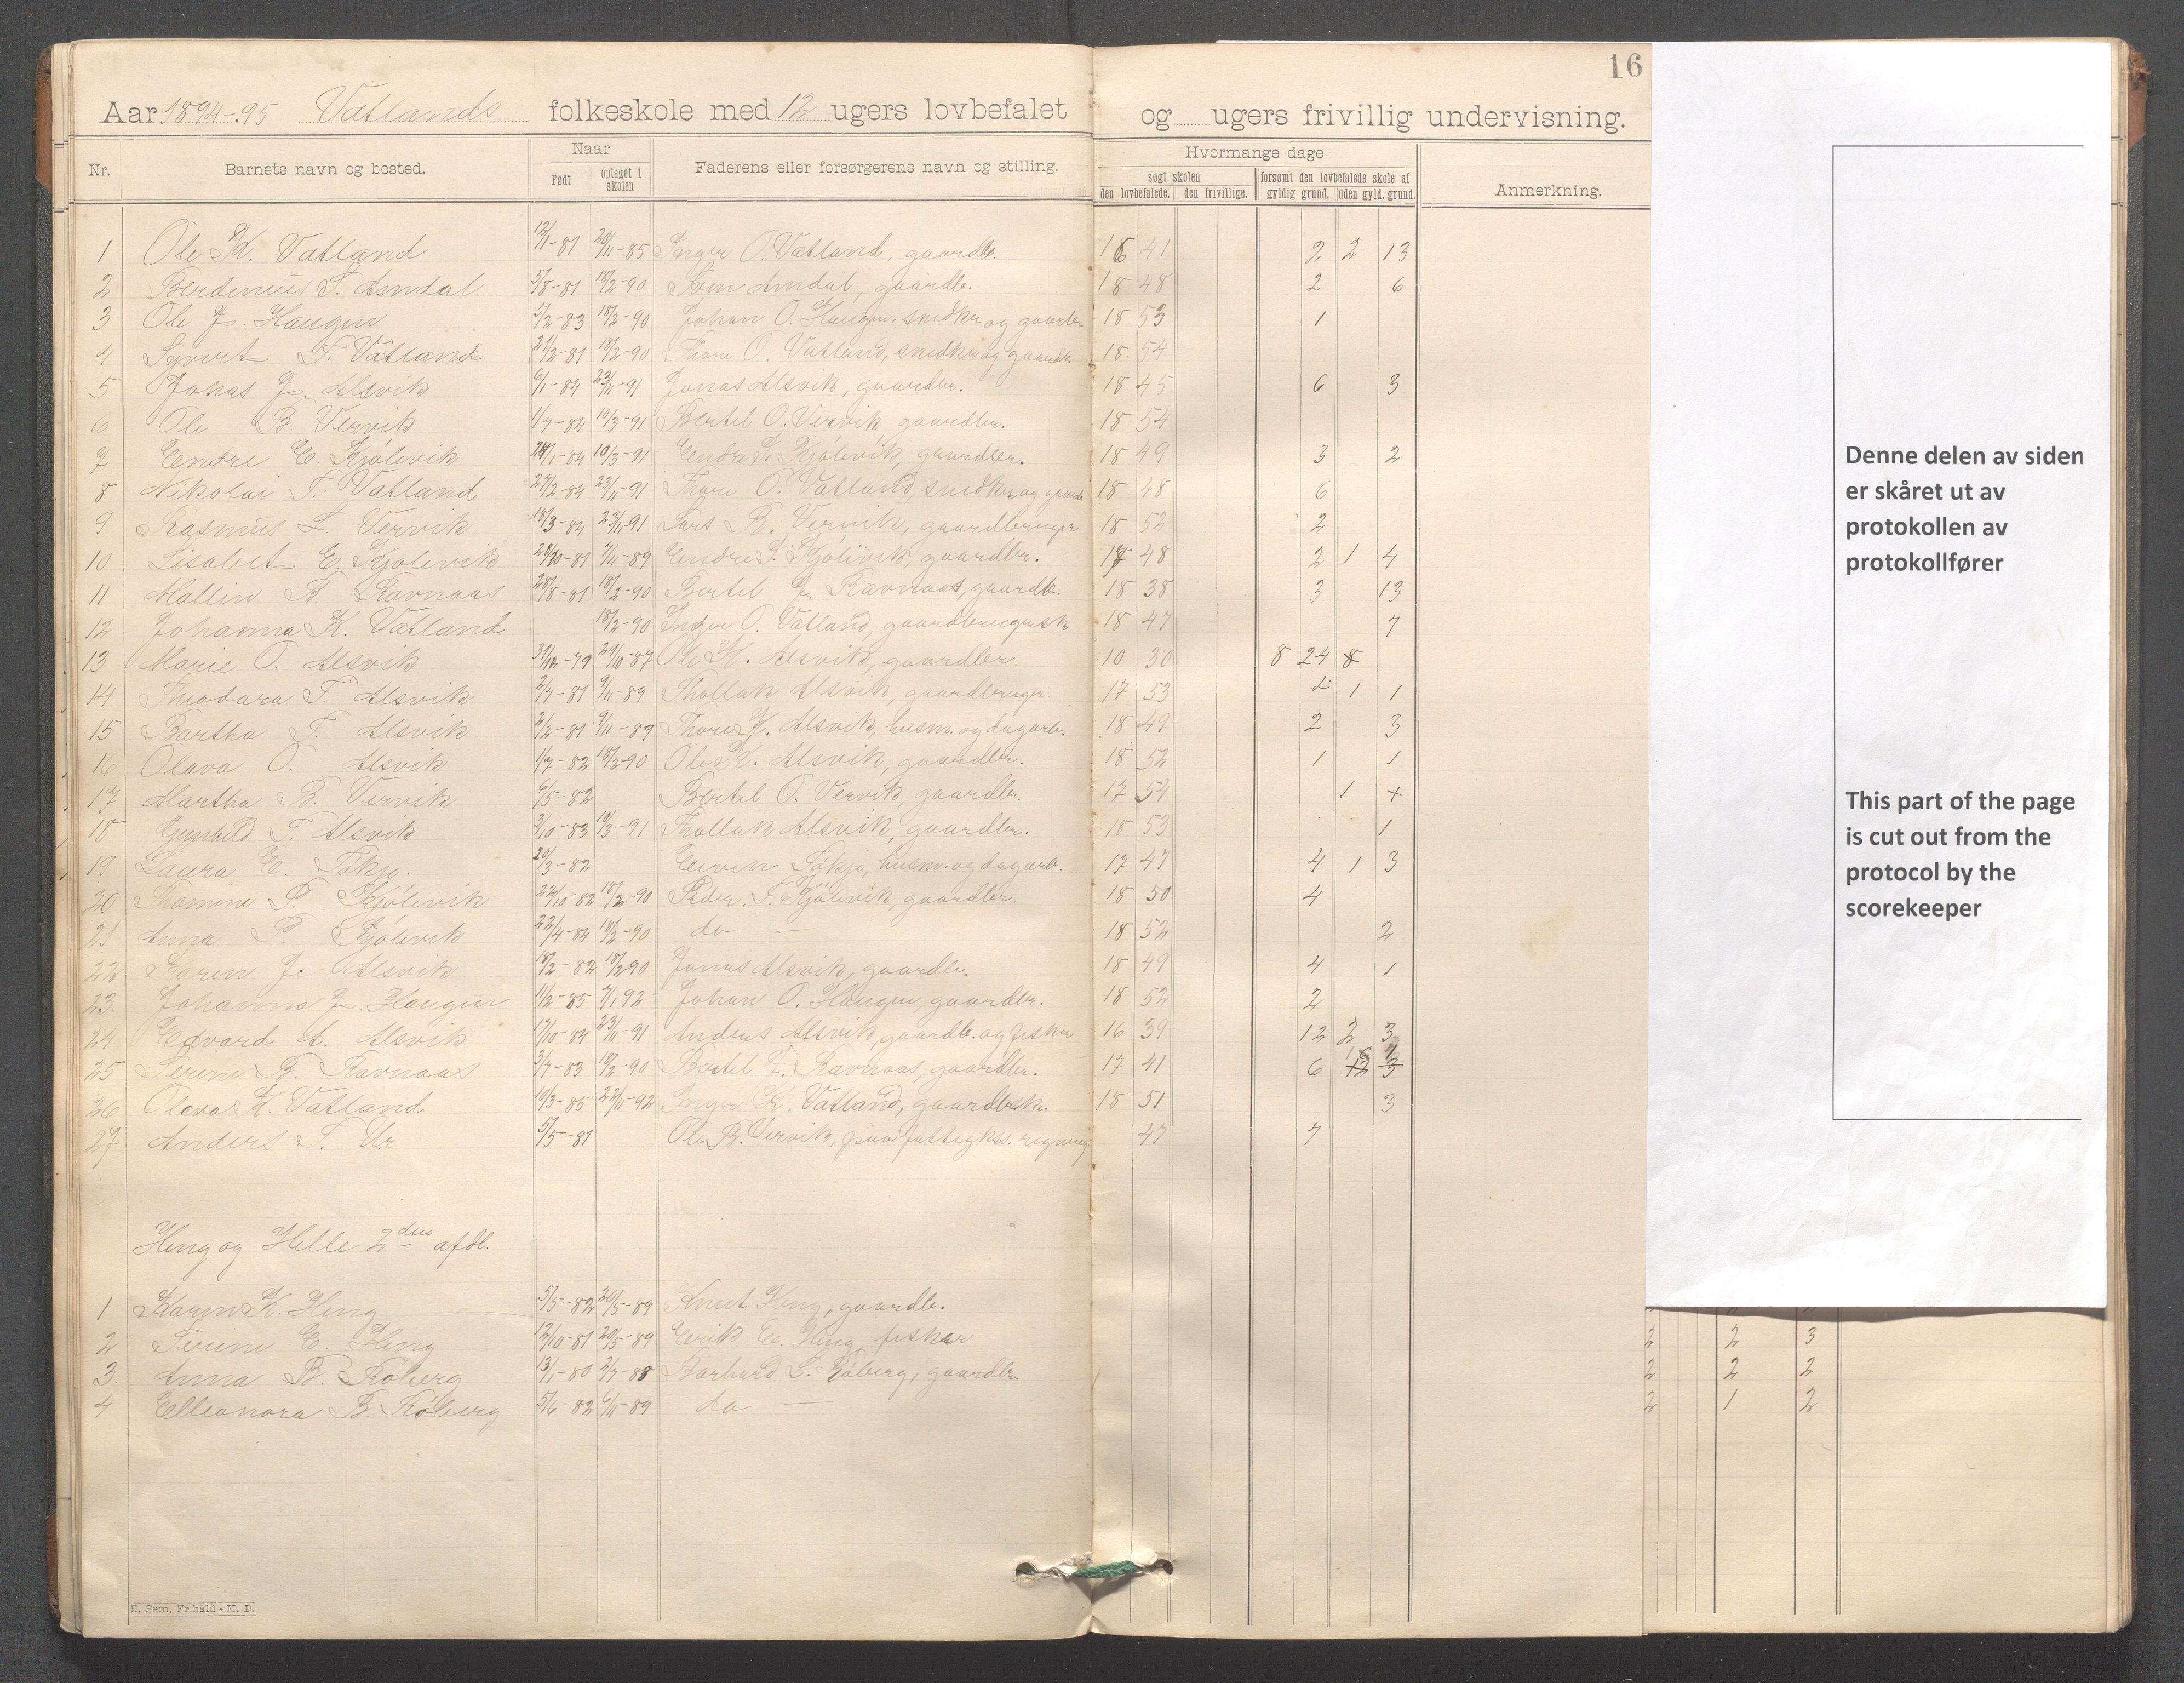 16
Aar 1894-95 Vatlands folkeskole med 12 ugers lovbefalet og ugers frivillig undervisning.
Nr. Barnets navn og bosted. Naar Født optaget i skolen Faderens eller forsørgerens navn og stilling. Hvormange dage søgt skolen den lovbefalede. den frivillige. forsømt den lovbefalede skole af gyldig grund. uden gyld. grund. Anmerkning.
1 Ole K. Vatland 12/1-81 20/11-85 Inger O. Vatland, gaardb. 16 41 2 2 13
2 S. Amdal 5/8-81 18/2-90 Amdal, gaardb. 18 48 2 6
3 Ole J. Haugen 5/2-83 18/2-90 Johan O. Haugen, snedker og gaardbr 18 53 1
4 Syvert T. Vatland 21/2-81 18/2-90 Thore O. Vatland, snedker og gaardb. 18 54
5 Jonas J. Alsvik 6/1-84 23/11-91 Jonas Alsvik, gaardbr. 18 45 6 3
6 Ole B. Vervik 1/7-84 10/3-91 Bertel O. Vervik, gaardbr. 18 54
7 Endre E. Kjølevik 24/1-84 10/3-91 Endre Kjølevik, gaardbr. 18 49 3 2
8 Nikolai T. Vatland 27/2-84 23/11-91 Thore O. Vatland, snedker og gaardb 18 48 6
9 Rasmus L. Vervik 18/3-84 23/11-91 Lars R. Vervik, gaardbruger 18 52 2
10 Lisabet E. Kjølevik 7/11-89 Endre Kjølevik, gaardbr. 17 48 2 1 4
11 Mallin B. Ravnaas 28/8-81 18/2-90 Bertel J. Ravnaas, gaardb. 18 38 3 13
12 Johanna K. Vatland 18/2-90 Inger O. Vatland, gaardbrugersk 18 47 7
13 Marie O. Alsvik 31/12-79 29/10-87 Ole K. Alsvik, gaardbr. 10 30 8 24 8
14 Theodora T. Alsvik 2/7-81 9/11-89 Thollak Alsvik, gaardbruger. 17 53 1 1
15 Bertha T. Alsvik 2/2-81 9/11-89 Thore K. Alsvik, husm. og dagarb. 18 49 2 3
16 Olava O. Alsvik 1/7-82 18/2-90 Ole K. Alsvik, gaardbr. 18 52 1 1
17 Martha B. Vervik 6/5-82 Bertel O. Vervik, gaardbr. 17 54 1 +
18 Gunhild T. Alsvik 3/10-83 10/3-91 Thollak Alsvik, gaardbr. 18 53 1
19 Laura E. Tøkje. 20/3-82 Even Tøkje, husm. og dagarb. 17 47 4 1 3
20 Thomine P. Kjølevik 22/10-82 18/2-90 Peder. T. Kjølevik, gaardbr. 18 50 4
21 Anna P. Kjølevik 22/4-84 18/2-90 do — 18 52 2
22 Karen J. Alsvik 18/2-82 18/2-90 Jonas Alsvik, gaardb. 18 49 4 1
23. Johanna J. Haugen 11/2-85 7/1 92 Johan O. Haugen, gaardbr. 18 52 2
24 Edvard A. Alsvik 17/10-84 23/11-91 Anders Alsvik, gaardb. og fisker 16 39 12 2 3
25 Serine B. Ravnaas 3/7-83 18/2-90 Bertel J. Ravnaas, gaardbr. 17 41 6
26 Olava K. Vatland 10/3-85 22/11-92 Inger K. Vatland, gaardbrsk. 18 51 3
27 Anders T. Ur 5/5-81 Ole B. Vervik, paa fattigkss. regning 47 7
Heng og Helle 2den afdl.
1 Karen K. Heng 5/5-82 20/5-89 Knut Heng, gaardb.
2 Serine E. Heng 12/10-81 20/5-89 Erik E. Heng, fisker
3. Anna B. Røberg 13/1-80 2/7-88 Barhard L. Røberg, gaardbr.
4 Elleonora B. Røberg 5/6-82 6/11-89 do —
2 2 3
2 2 2
2 1 2
E. Sem, Fr.hald - M. D.
Denne delen av siden
er skåret ut av
protokollen av
protokollfører
This part of the page
is cut out from the
protocol by the
scorekeeper